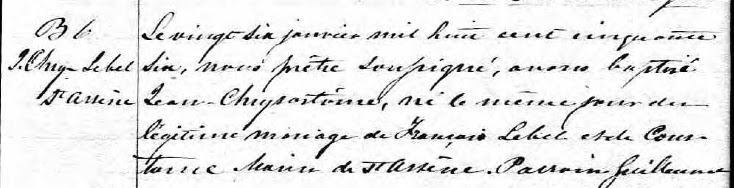 B 6
J. Chry. Lebel
St Arsène
Le vingt six janvier mil huit cent cinquante
six, nous prêtre soussigné, avons baptisé
Jean-Chrysostôme, né le même jour du
légitime mariage de François Lebel et de Cons-
tance Morin de St Arsène. Parrain Guillaume